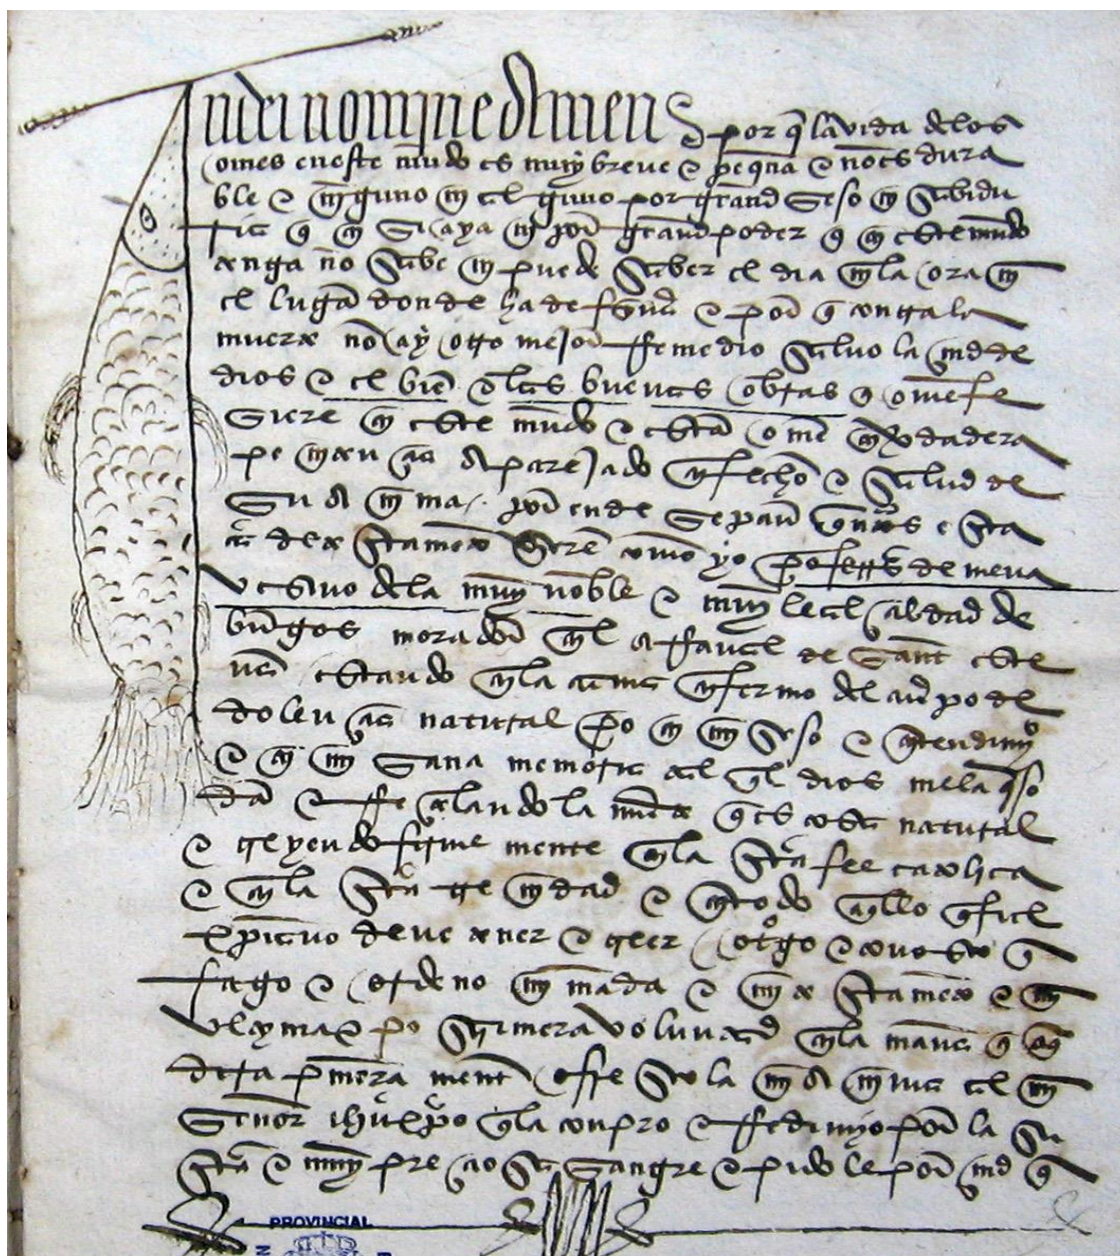 In dei nomine Amen por q̄ la vida delos
omes eneste mũdo es muy breue e peq̄na e nōes dura
ble e nīguno nī alguno por grand seso nī sabidu
ria q̄ en si aya nī por grand poder q̄ en este mũdo
tenga nō sabe nī puede saber el dia nīla ora nī
el lugar donde ha de e por q̄ contra la
muerte nō ay otro mejor rremedio saluo la mrd de
dios e el biē e las buenas obras q̄ ome fe
siere en este mũdo e estar ome en vdadera
penitencia aparejado en fecho e salud de
su anima por ende sepan quātos esta
cã de testamēto vierē como yo p̄o ferrs de mena
vesino dela muy noble e muy leal cibdad de
burgos morador enl arraual de sant este
uã estando enla cama enfermo del cuerpo de
dolencia natural pero en mi seso e entendimiº
e en mi sana memoria tal qual dios mela q̄so
dar e rreçelando la muerte q̄ es cosa natural
e creyendo firme mente enla sãta fee catolica
e enla sãta trenidad e en todo aq̄llo q̄ fiel
xp̄iano deue tener e creer otorgo e conosco q̄
fago e ordeno mi māda e mi testamēto e mi
vltyma e postrimera voluntad enla manera q̄
dira primera mente ofresco la mi anima al mi
señor ihũ xp̄o q̄la conpro e rredimyo por la su
sãta e muy preciosa sangre e pido le por mrd q̄
PROVINCIAL